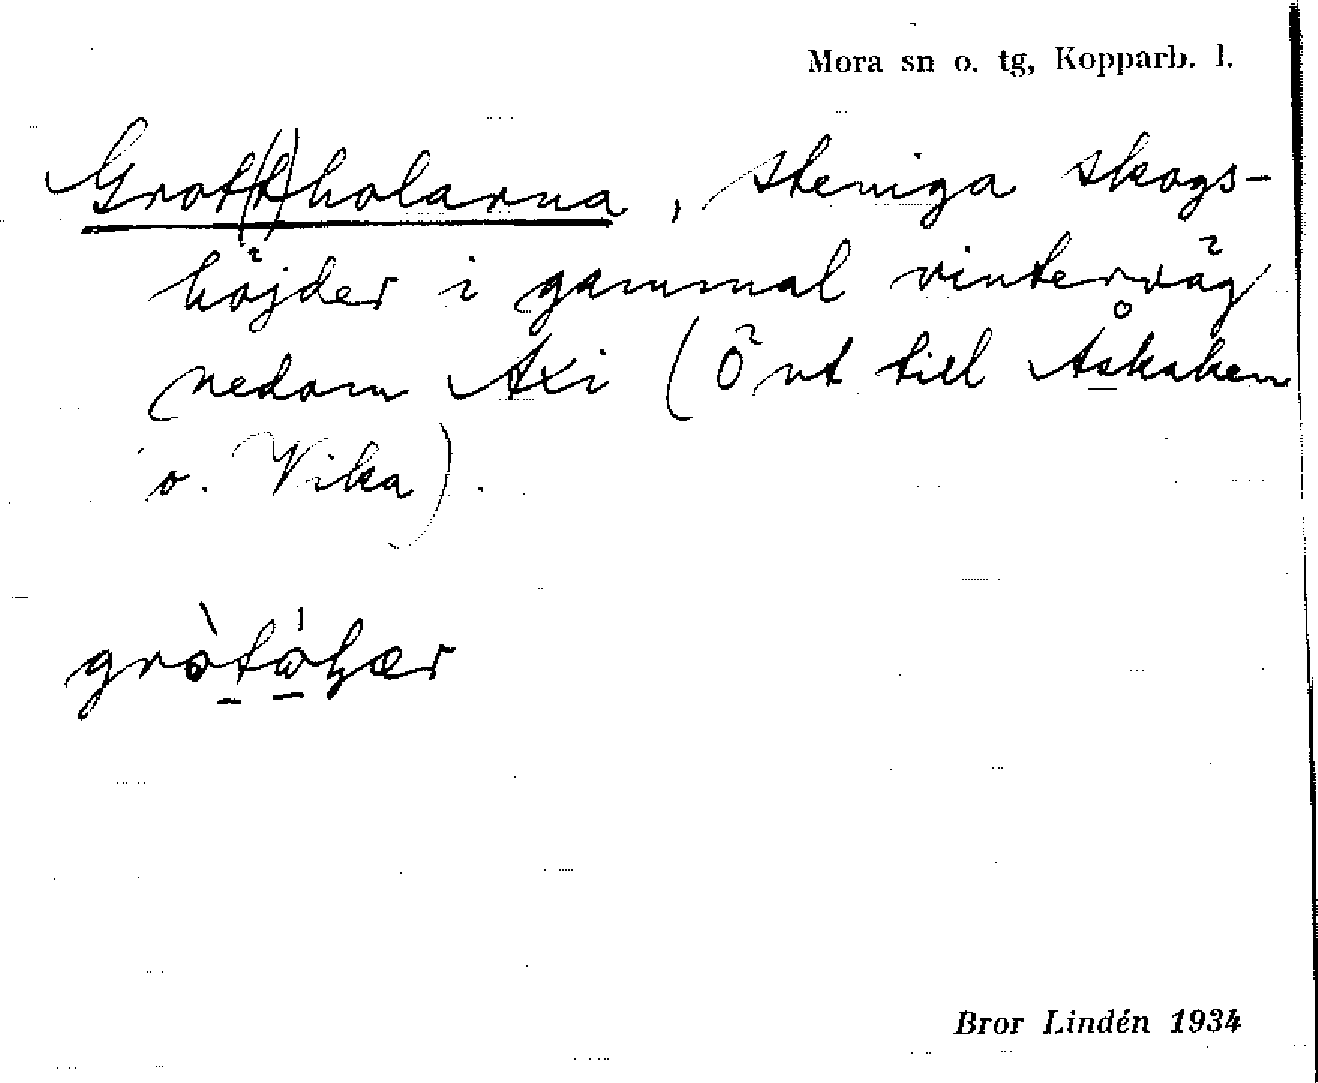 Mora sn o. tg, Kopparb. l.
Grot(t)holarna, steniga skogs-
höjder i gammal vinterväg
nedom Axi (Ö ut till Åskaken
o. Vika).
Bror Lindén 1934